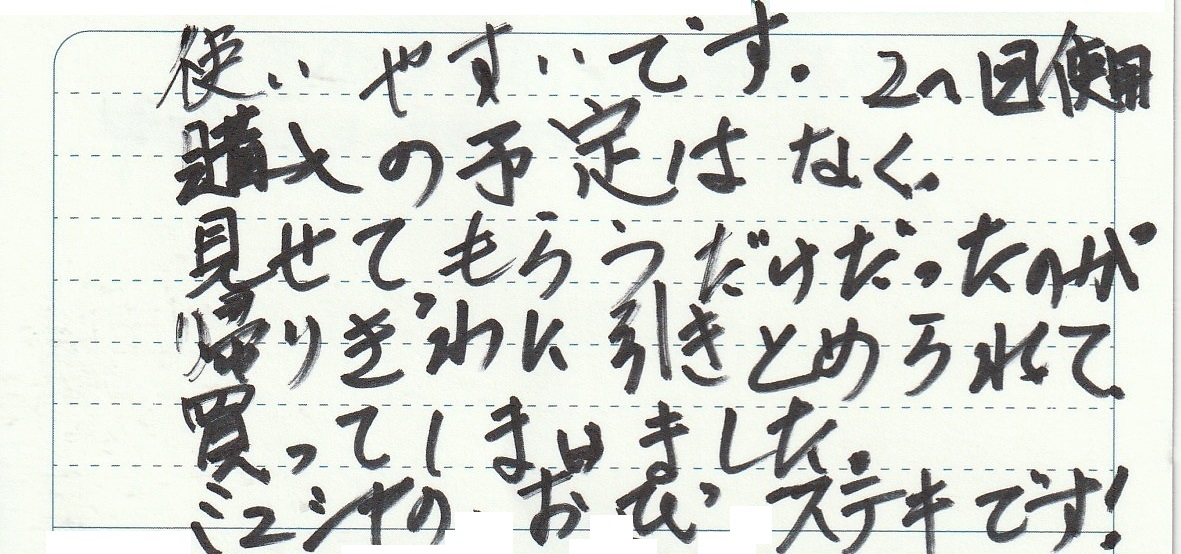 使いやすいです。 2〜回使用
購入の予定はなく、
見せてもらうだけだったのが
帰りぎわに引きとめられて
買ってしまいました。
ミュシャのおび ステキです!